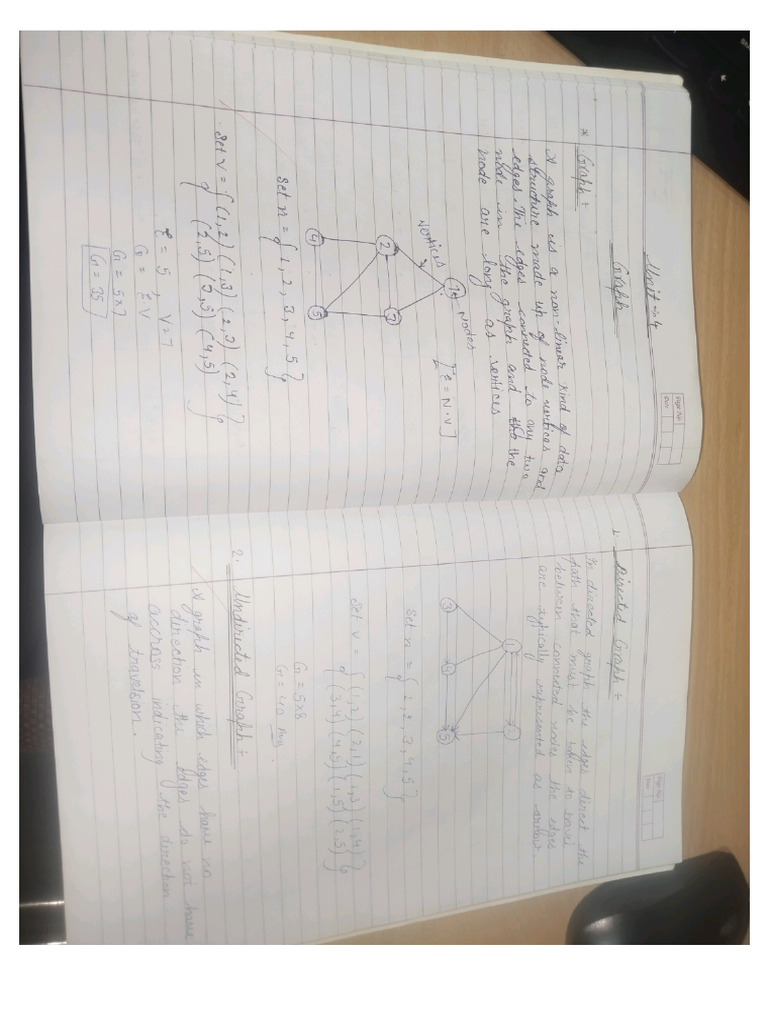 Unit - 4
Graph
* Graph +
A graph is a non-linear kind of data
structure made up of node vertices and
edges. The edges connected to any two
node in the graph and the the
node are long as vertices
1
Nodes
vertices
[ E = N.V ]
2
3
4
5
Set n = { 1, 2, 3, 4, 5 }
Set V = { (1,2) (1,3) (2,3) (2,4) }
{ (2,5) (3,5) (4,5) }
E = 5 , V = 7
G = E.V
G = 5x7
G = 35
Page No.
Date
1. Directed Graph +
In directed graph the edges direct the
path that must be taken to travel
between connected nodes the edges
are typically represented as arrow.
1
3
5
Set n = { 1, 2, 3, 4, 5 }
Set V = { (1,2) (2,1) (1,3) (1,4) }
{ (3,4) (4,5) (1,5) (2,5) }
G = 5x8
G = 40
2. Undirected Graph +
A graph in which edges have no
direction the edges do not have
accross indicating the direction
of travelsion.
Page No.